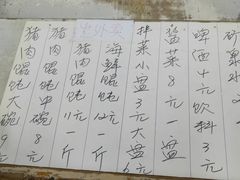 猪肉馄饨大碗9
猪肉馄饨中碗8元
生外卖
猪肉馄饨11元一斤
海鲜馄饨12元一斤
拌菜小盘3元大盘6元
菜8元一盘
啤酒4元饮料3元
矿泉水